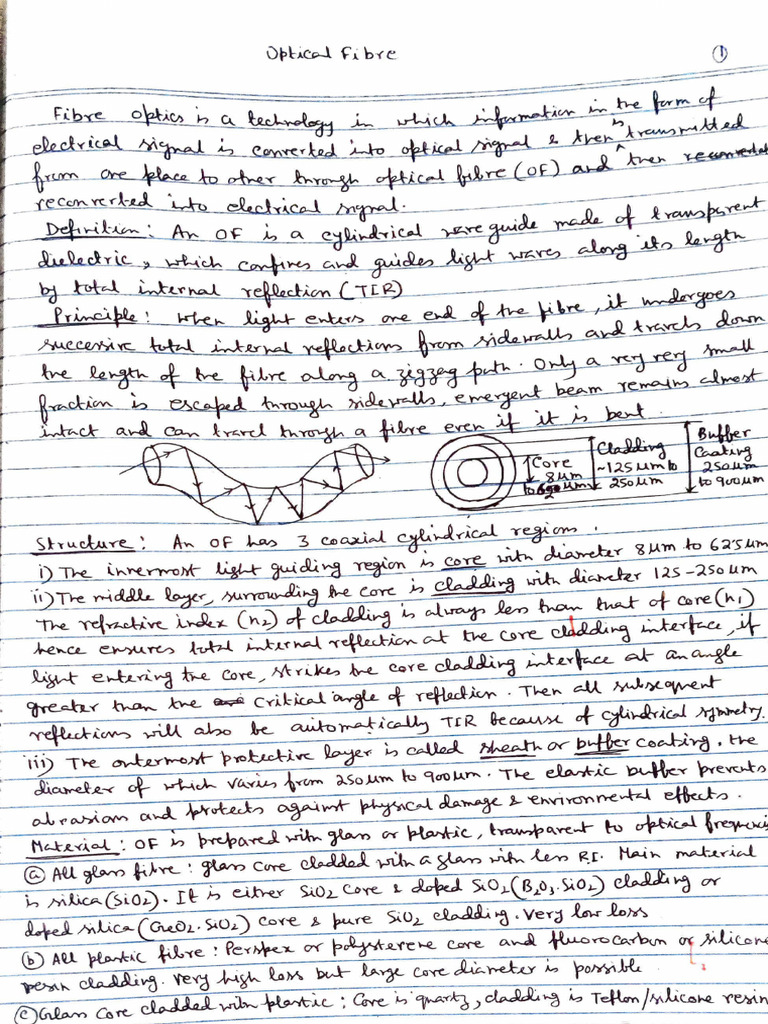 Optical Fibre
1
Fibre optics is a technology in which information in the form of
electrical signal is converted into optical signal & then is transmitted
from one place to other through optical fibre (OF) and then
reconverted into electrical signal.
Definition: An OF is a cylindrical wave guide made of transparent
dielectric, which confines and guides light waves along its length
by total internal reflection (TIR)
Principle: When light enters one end of the fibre, it undergoes
successive total internal reflections from sidewalls and travels down
the length of the fibre along a zigzag path. Only a very very small
fraction is escaped through sidewalls, emergent beam remains almost
intact and can travel through a fibre even if it is bent.
Core
8μm
to
Cladding
~125μm to
250μm
Buffer
Coating
250μm
to 900μm
Structure: An OF has 3 coaxial cylindrical regions.
i) The innermost light guiding region is core with diameter 8μm to 62.5μm
ii) The middle layer, surrounding the core is cladding with diameter 125-250μm
The refractive index (n2) of cladding is always less than that of core (n1)
hence ensures total internal reflection at the core cladding interface, if
light entering the core, strikes the core cladding interface at an angle
greater than the critical angle of reflection. Then all subsequent
reflections will also be automatically TIR because of cylindrical symmetry.
iii) The outermost protective layer is called sheath or buffer coating. the
diameter of which varies from 250μm to 900μm. The elastic buffer prevents
abrasions and protects against physical damage & environmental effects.
Material: OF is prepared with glass or plastic, transparent to optical frequencies
(a) All glass fibre: glass core cladded with a glass with less R.I. Main material
is silica (SiO2). It is either SiO2 core & doped SiO2 (B2O3.SiO2) cladding or
doped silica (GeO2.SiO2) core & pure SiO2 cladding. Very low loss
(b) All plastic fibre: Perspex or polysterene core and fluorocarbon or silicone
resin cladding. Very high loss but large core diameter is possible
(c) Glass core cladded with plastic: Core is quartz, cladding is Teflon/silicone resin